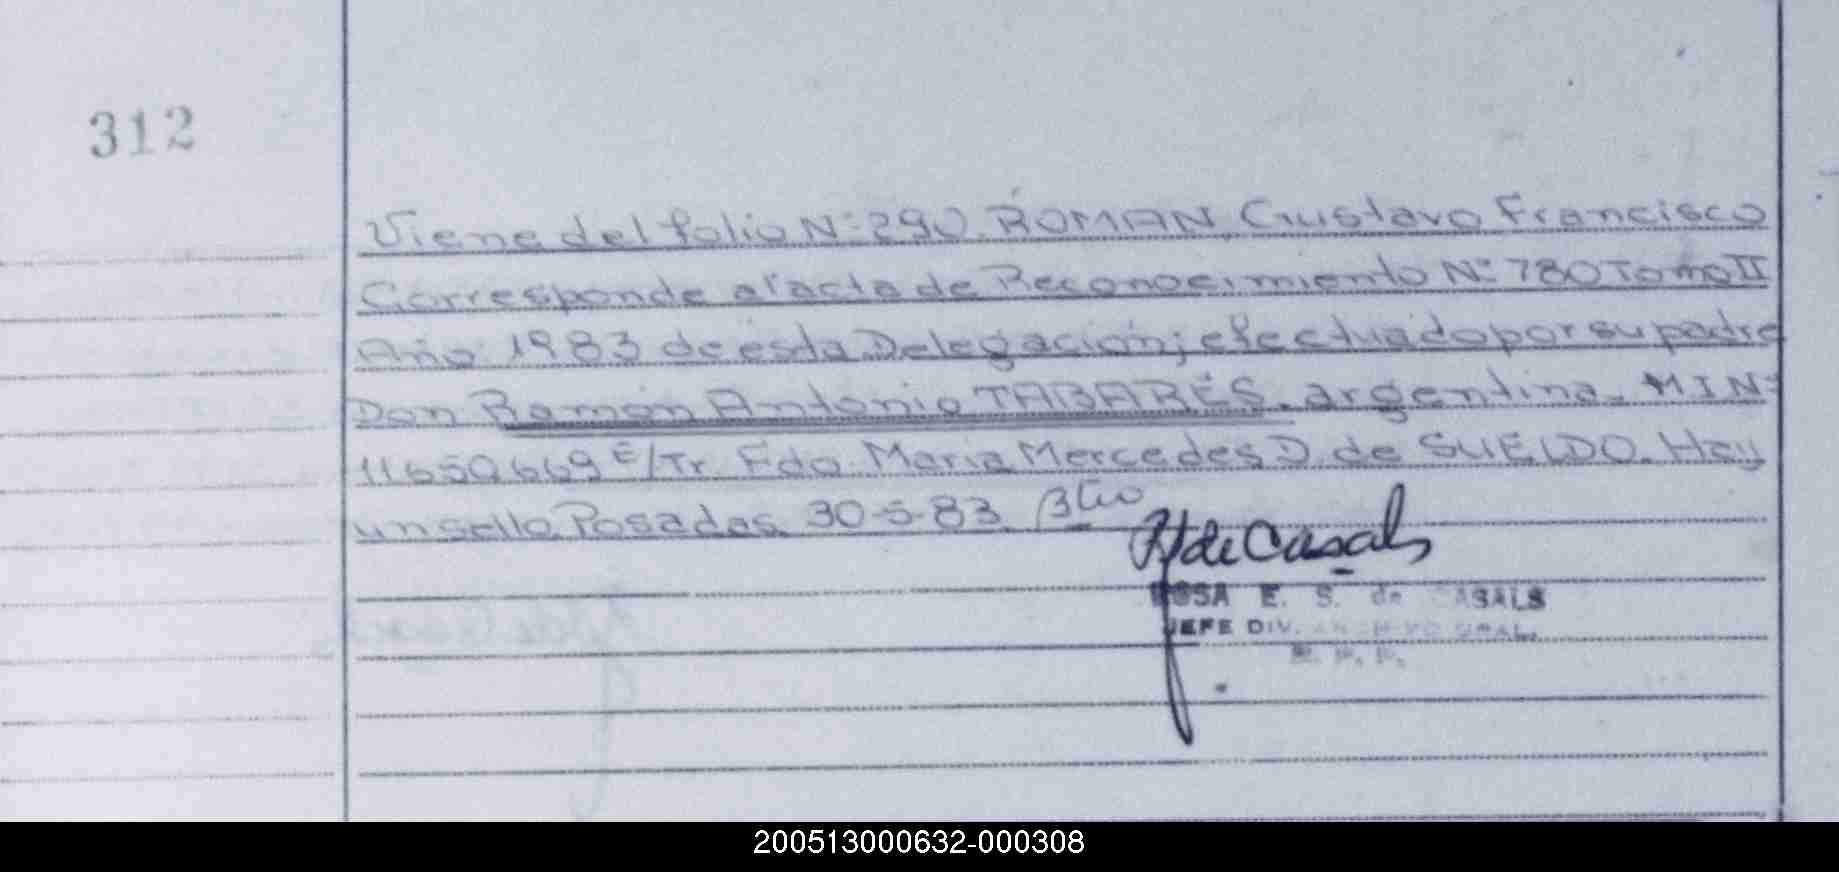 312
Viene del folio N: 290. ROMAN, Gustavo Francisco
Corresponde al acta de Reconocimiento N: 780 Tomo II
Año 1983 de esta Delegación; efectuado por su padre
Don Ramón Antonio TABARÉS. argentina. M I N:
11650669 E/Tr. Fdo. Maria Mercedes D. de SUELDO. Hay
un sello. Posadas. 30-5-83.
R de Casals
ROSA E. S. de CASALS
JEFE DIV. ARCHIVO GRAL.
R. P. P.
200513000632-000308